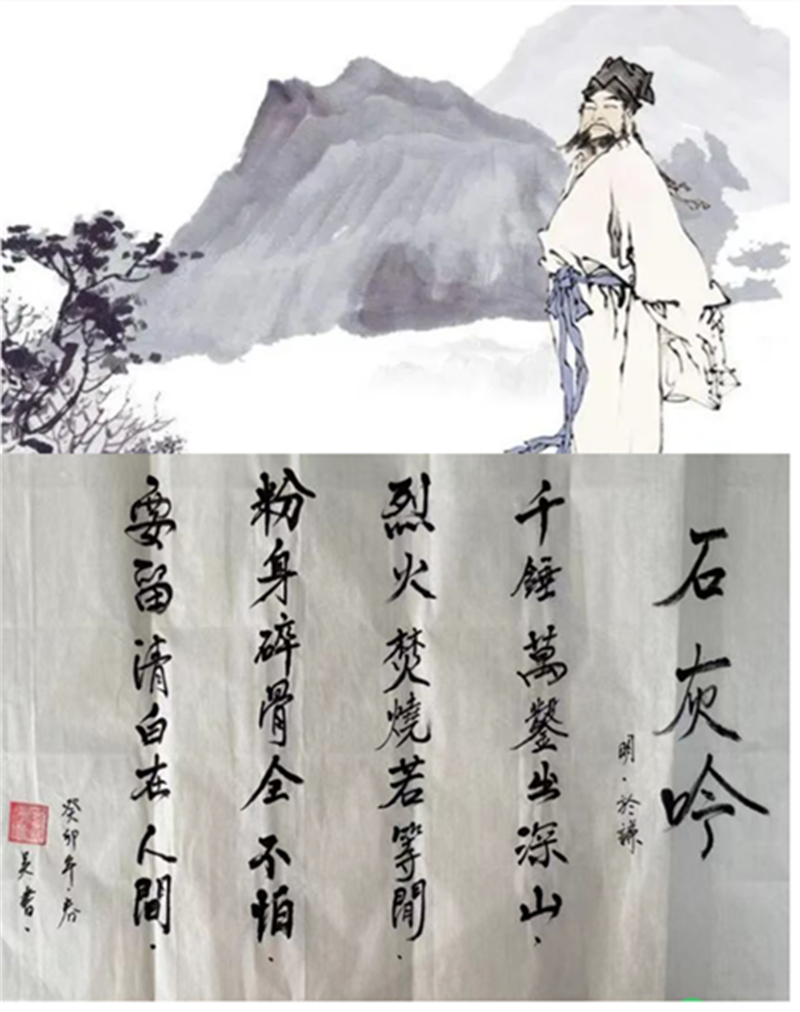 石灰吟
明·於謙
千錘萬鑿出深山.
烈火焚燒若等閒.
粉身碎骨全不怕.
要留清白在人間.
癸卯年·春
吴書.